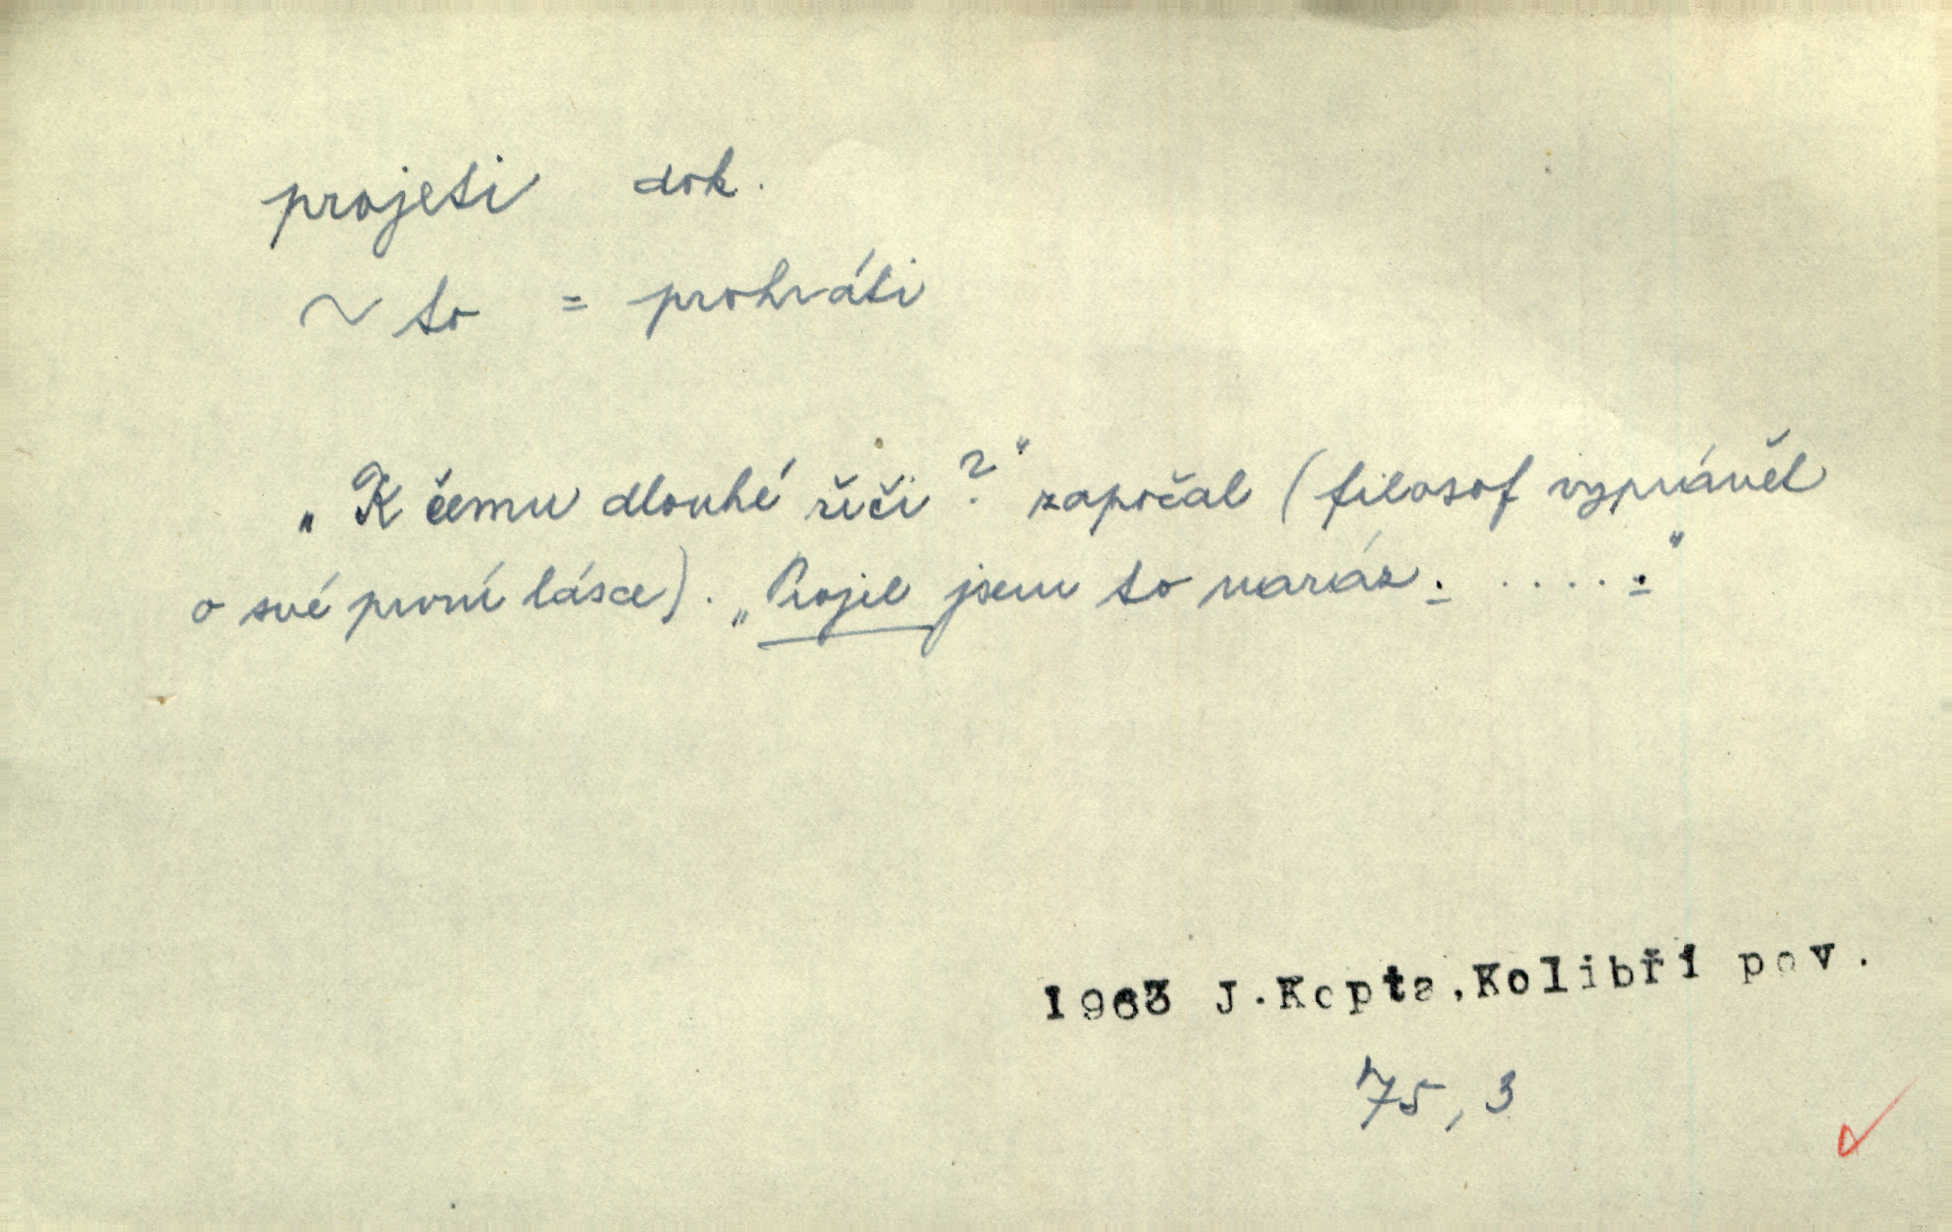 projeti dok.
~ to = prohráti
„K čemu dlouhé řeči?" započal (filosof vyprávěl
o své první lásce). „Projel jsem to naráz. ..... ."
1963 J.Kopta,Kolibří pov.
75, 3